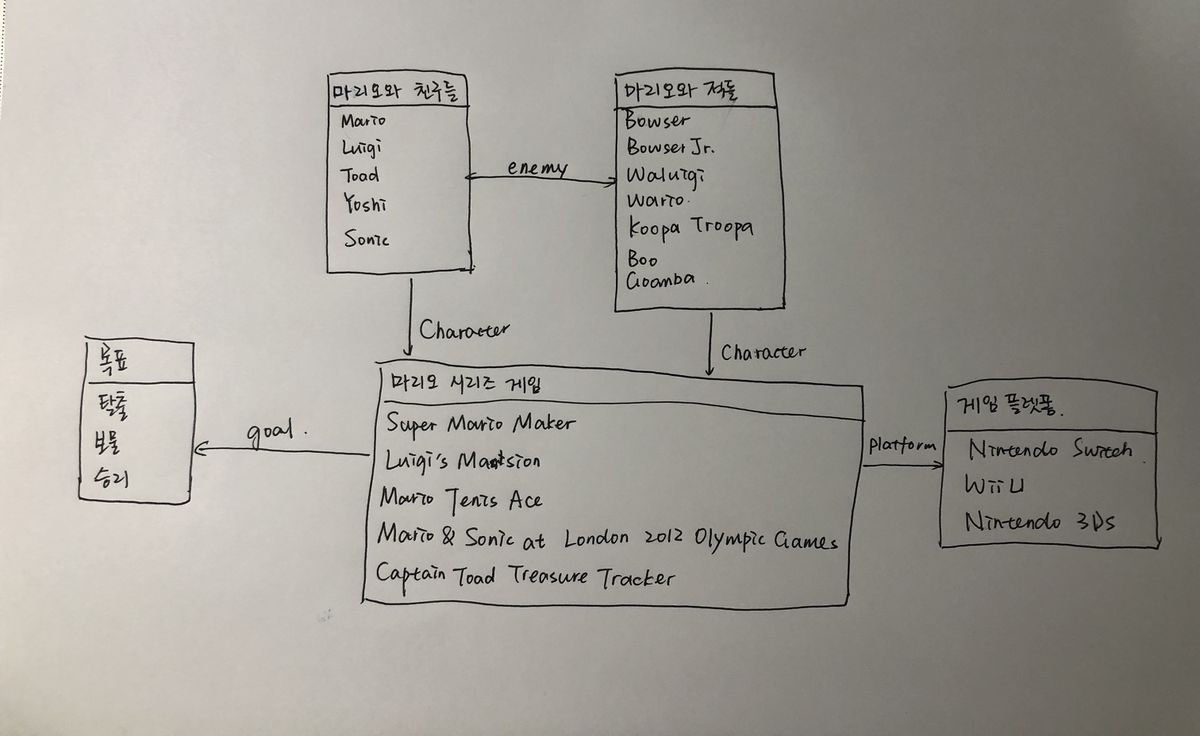 마리오와 친구들
Mario
Luigi
Toad
Yoshi
Sonic
enemy
마리오와 적들
Bowser
Bowser Jr.
Waluigi
Wario.
Koopa Troopa
Boo
Goamba.
Character
Character
목표
탈출
보물
승리
goal.
마리오 시리즈 게임
Super Mario Maker
Luigi's Mantsion
Mario Tenis Ace
Mario & Sonic at London 2012 Olympic Games
Captain Toad Treasure Tracker
Platform
게임 플렛폼.
Nintendo Switch
Wii U
Nintendo 3DS